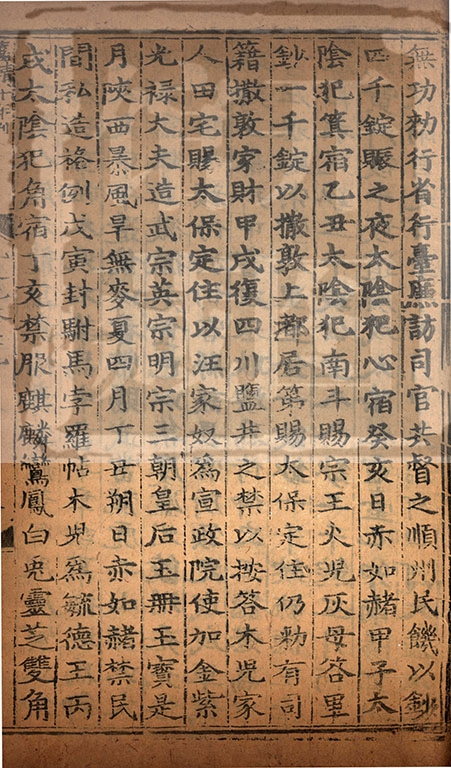 無功勑行省行臺廉訪司官共督之順州民饑以鈔
四千錠賑之夜太陰犯心宿癸亥日赤如赭甲子太
陰犯箕宿乙丑太陰犯南斗賜宗王火兒灰母答里
鈔一千錠以撒敦上都居第賜太保定住仍勑有司
籍撒敦家財甲戌復四川鹽井之禁以按答木兒家
人田宅賜太保定住以汪家奴爲宣政院使加金紫
光禄大夫造武宗英宗明宗三朝皇后玉冊玉寶是
月陝西暴風旱無麥夏四月丁丑朔日赤如赭禁民
間私造格例戊寅封駙馬孛羅帖木兒爲毓德王丙
戌太陰犯角宿丁亥禁服麒麟鸞鳳白兎靈芝雙角